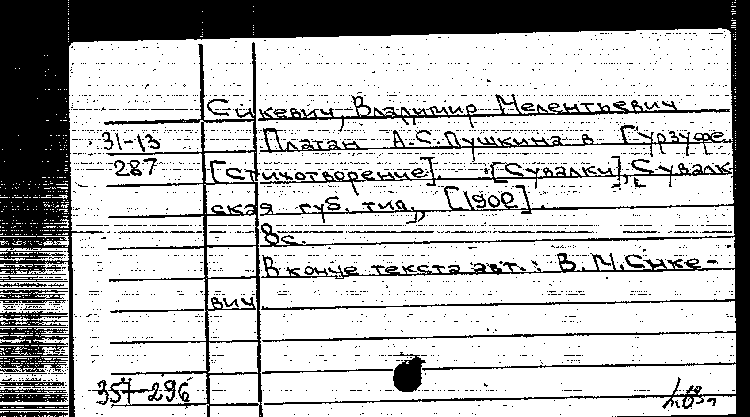 Сикевич, Владимир Мелентьевич
31-13 Платан А.С.Пушкина в Гурзуфе.
287 [Стихотворение]. [Сувалки], Сувалк
ская губ. тип., [190?].
8с.
В конце текста авт.: В.М.Сике-
вич
357-296